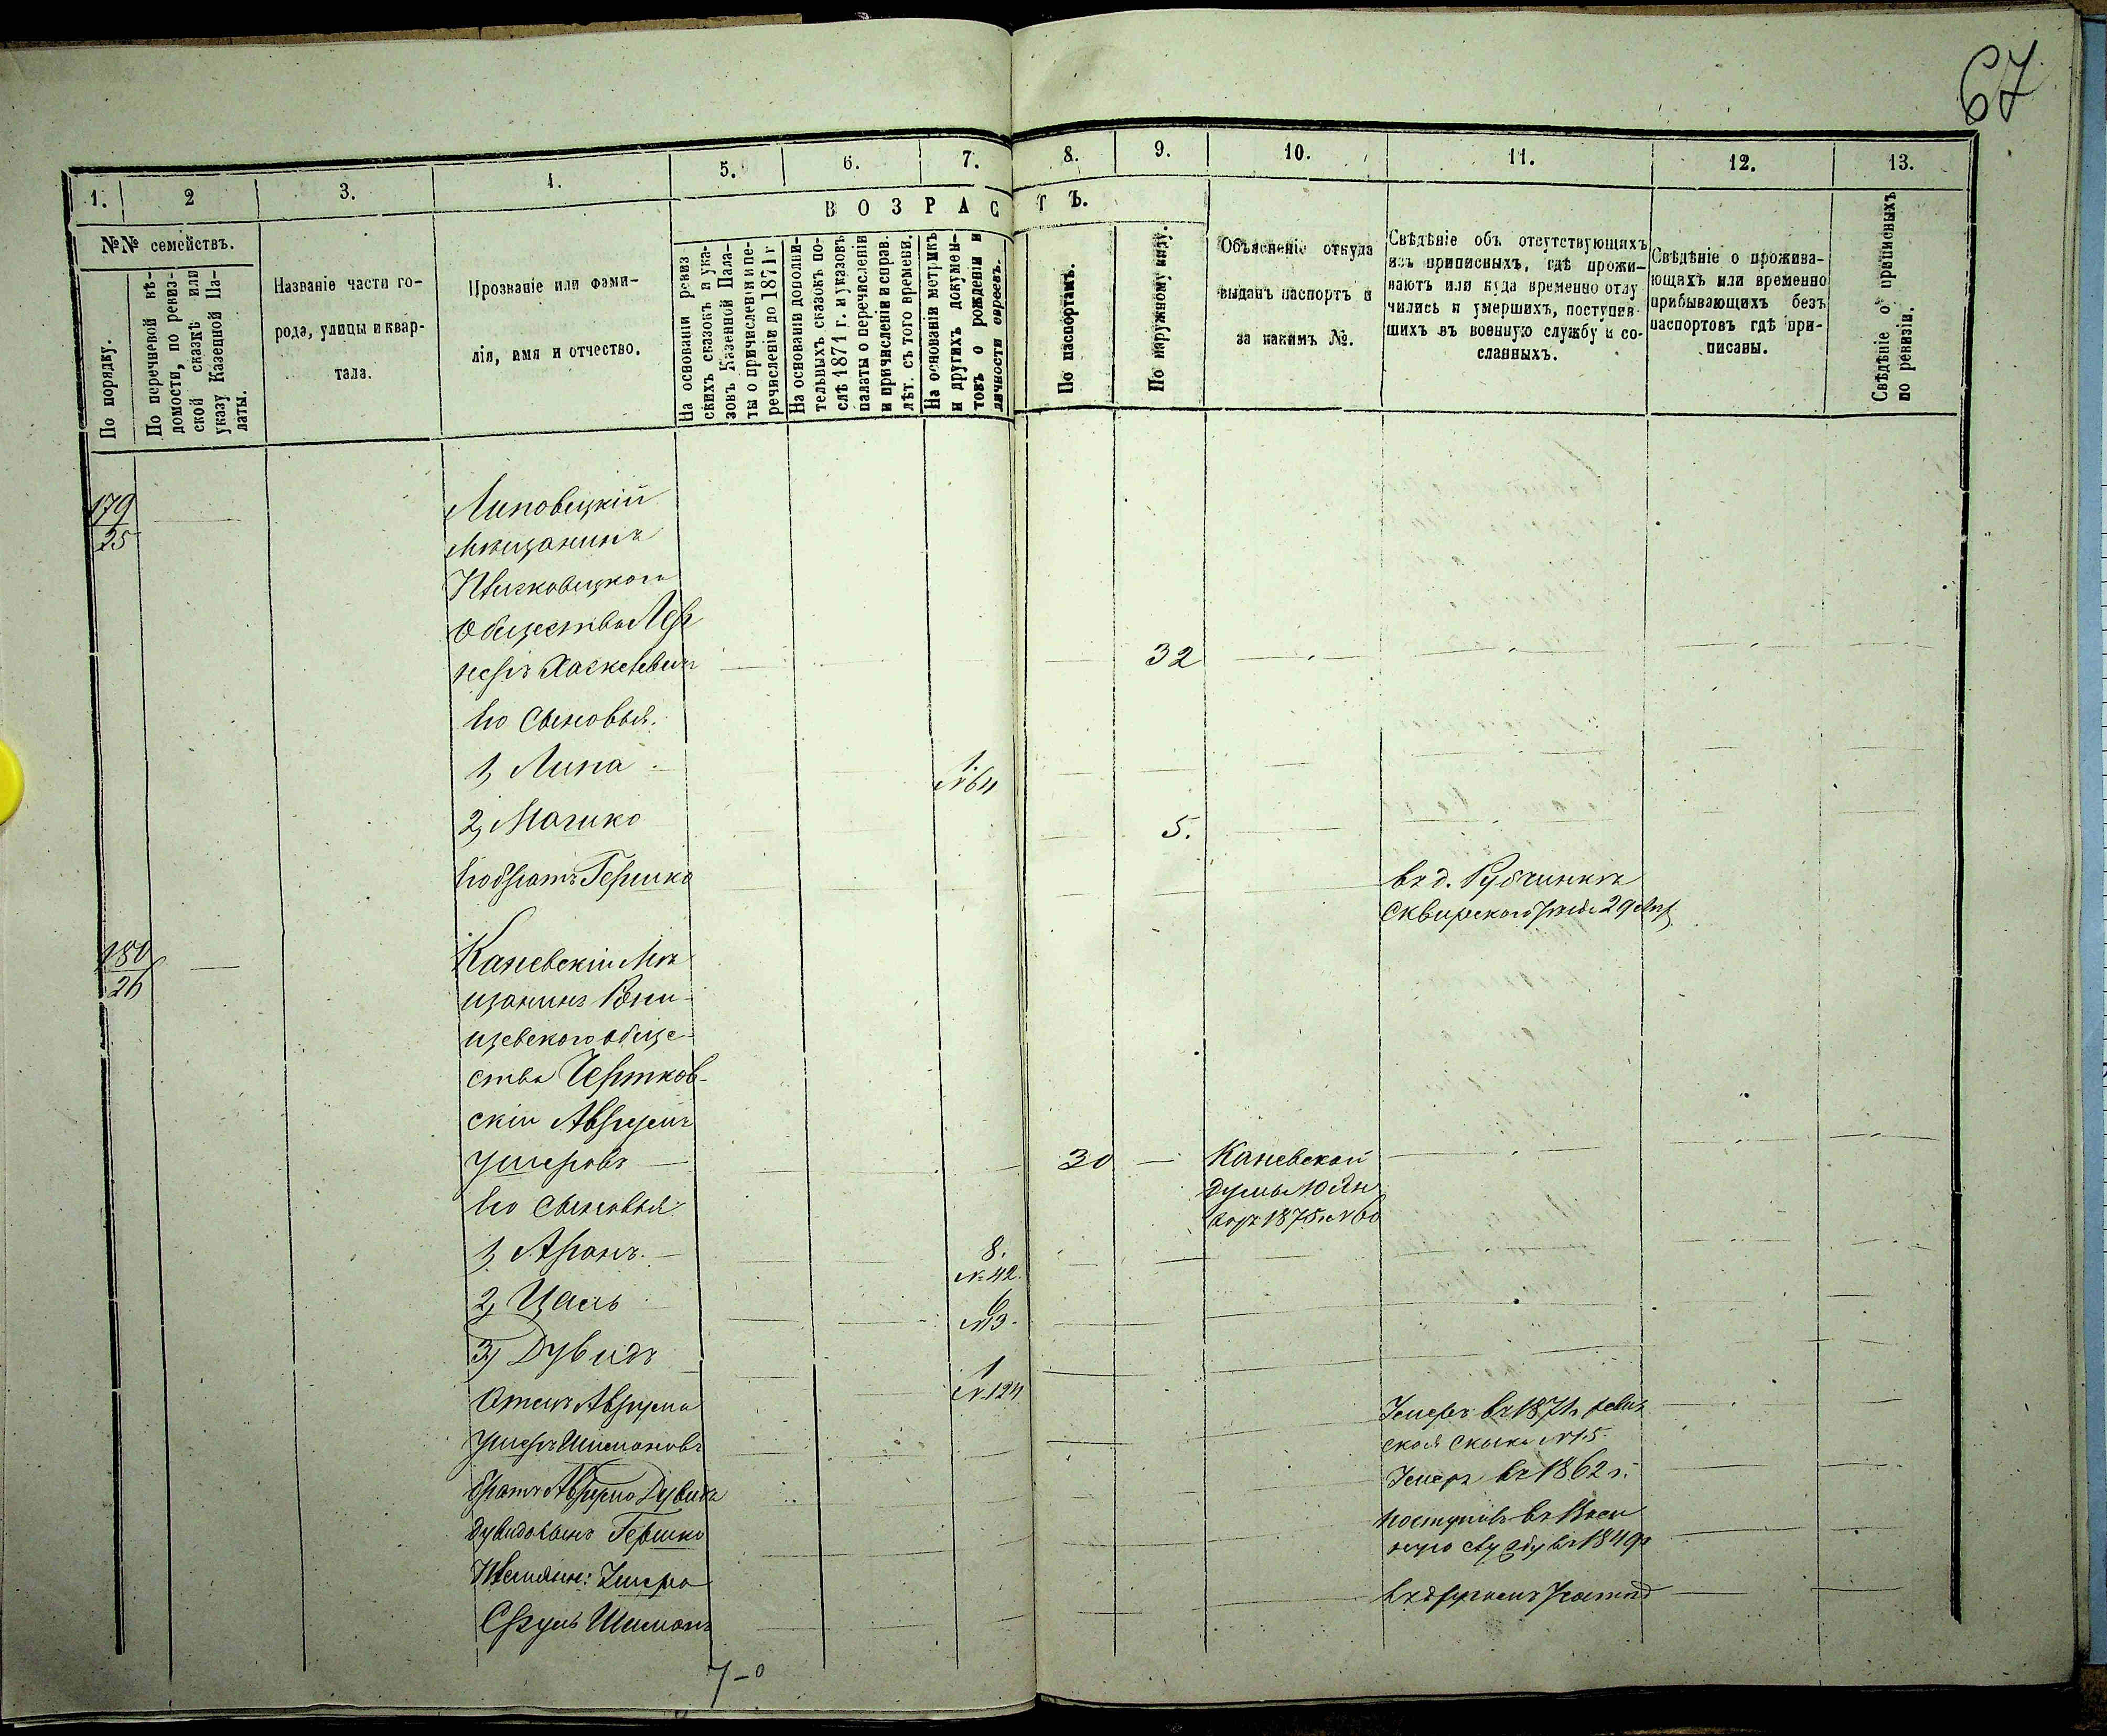 67
1. 2 3. 4. 5. 6. 7. 8. 9. 10. 11. 12. 13.
ВОЗРАСТЪ.
№№ семействъ.
По порядку.
По перечневой вѣ-
домости, по ревиз-
ской сказкѣ или
указу Казенной Па-
латы.
Названіе части го-
рода, улицы и квар-
тала.
Прозваніе или фами-
лія, имя и отчество.
На основаніи ревиз
скихъ сказокъ и ука-
зовъ Казенной Пала-
ты о причисленіи и пе-
речисленіи до 1871 г
На основаніи дополни-
тельныхъ сказокъ по-
слѣ 1871 г. и указовъ
палаты о перечисленіи
и причисленіи и справ.
лѣт. съ того времени.
На основаніи метрикъ
и другихъ докумен-
товъ о рожденіи и
личности евреевъ.
По паспортамъ.
По наружному виду.
Объясненіе откуда
выданъ паспортъ и
за какимъ №.
Свѣдѣніе объ отсутствующихъ
изъ приписныхъ, гдѣ прожи-
ваютъ или куда временно отлу
чились и умершихъ, поступив-
шихъ въ военную службу и со-
сланныхъ.
Свѣдѣніе о прожива-
ющахъ или временно
прибывающихъ безъ
паспортовъ гдѣ при-
писаны.
Свѣдѣніе о приписныхъ
по ревизіи.
179
25
Липовецкій
Мѣщанинъ
Общества Лер
неръ Хаскелевичъ
32
Его Сыновья.
1, Липа
1.
№ 64
2, Мошко
5.
Его братъ Гершко
въ д. Рубчинкѣ
Сквирского 29
180
26
Каневскій Мѣ
щанинъ Ржи-
щевского обще-
ства Чертков-
скій Аврумъ
Ушеровъ
30
Каневской
Думы 10 Ян
варя 1875 № 60
Его Сыновья
1, Аронъ.
8.
№ 42.
2, Цаль
6
№ 3.
3, Дувидъ
1
№ 124
Отецъ Аврума
Ушеръ Шимоновъ
Умеръ въ 1871 г. ревиз
ской Сказкѣ № 15.
братъ Аврума Дувидъ
Умеръ въ 1862 г.
Дувида сынъ Гершко
поступилъ въ Воен
ную Службу въ 1849 г
Племян: Ушера
Сруль Шимонъ
7-0